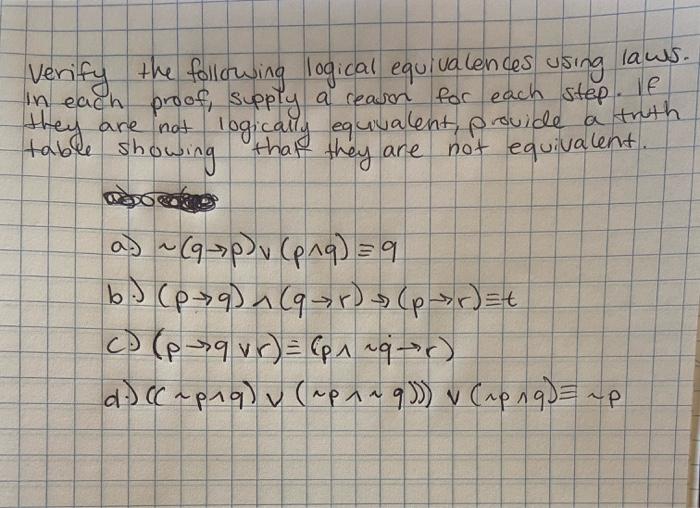 Verify the following logical equivalences using laws.
In each proof, supply a reason for each step. If
they are not logically equivalent, provide a truth
table showing that they are not equivalent.
a.) ~(q→p)∨(p∧q)≡q
b.) (p→q)∧(q→r)→(p→r)≡t
c.) (p→q∨r)≡(p∧~q→r)
d.) ((~p∧q)∨(~p∧~q)))∨(~p∧q)≡~p